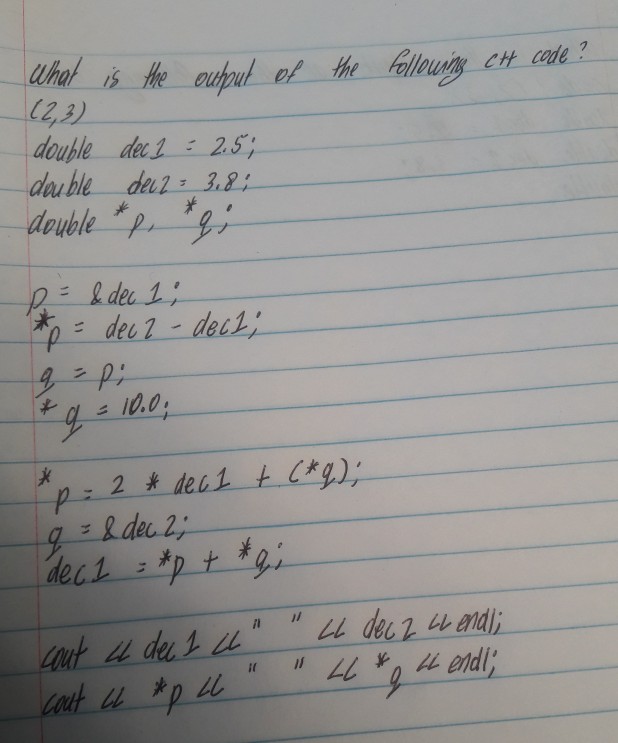 What is the output of the following C++ code?
(2,3)
double dec1 = 2.5;
double dec2 = 3.8;
double *p, *q;
p = &dec1;
*p = dec2 - dec1;
q = p;
*q = 10.0;
*p = 2 * dec1 + (*q);
q = &dec2;
dec1 = *p + *q;
cout << dec1 << " " << dec2 << endl;
cout << *p << " " << *q << endl;